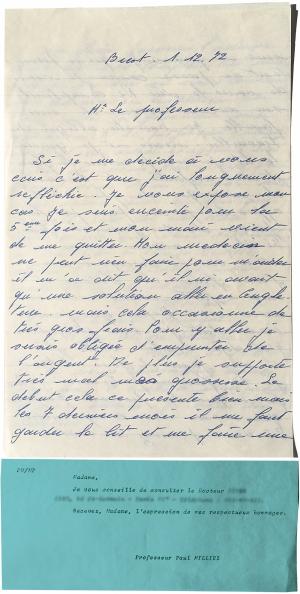 Brest. 1.12.72
Mr Le professeur
Si je me décide à vous
c'est que j'ai longuement
réfléchie. Je vous expose mon
cas. Je suis enceinte pour la
5 ème fois et mon mari vient
de me quitter. Mon médecin
ne peut rien faire pour m'aider
il m'a dit qu'il n'y avait
qu'une solution aller en Angle
terre mais cela occasionne de
très gros frais. Pour y aller je
serais obligée d'emprunter de
l'argent. De plus je supporte
très mal mes grossesse. Le
début cela se présente bien mais
les 7 derniers mois il me faut
garder le lit et me faire une
Madame,
Je vous conseille de consulter le Docteur
Recevez, Madame, l'expression de mes respectueux hommages.
Professeur Paul MILLIEZ